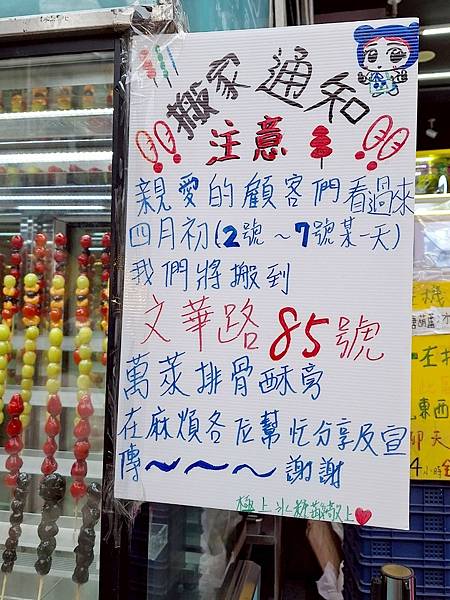 搬家通知
注意
親愛的顧客們看過來
四月初(2號~7號某一天)
我們將搬到
文華路85號
萬萊排骨酥旁
在麻煩各位幫忙分享及宣
傳~~~~謝謝
極上冰糖葫蘆敬上
機
唐葫蘆
東西
聊天
4小時